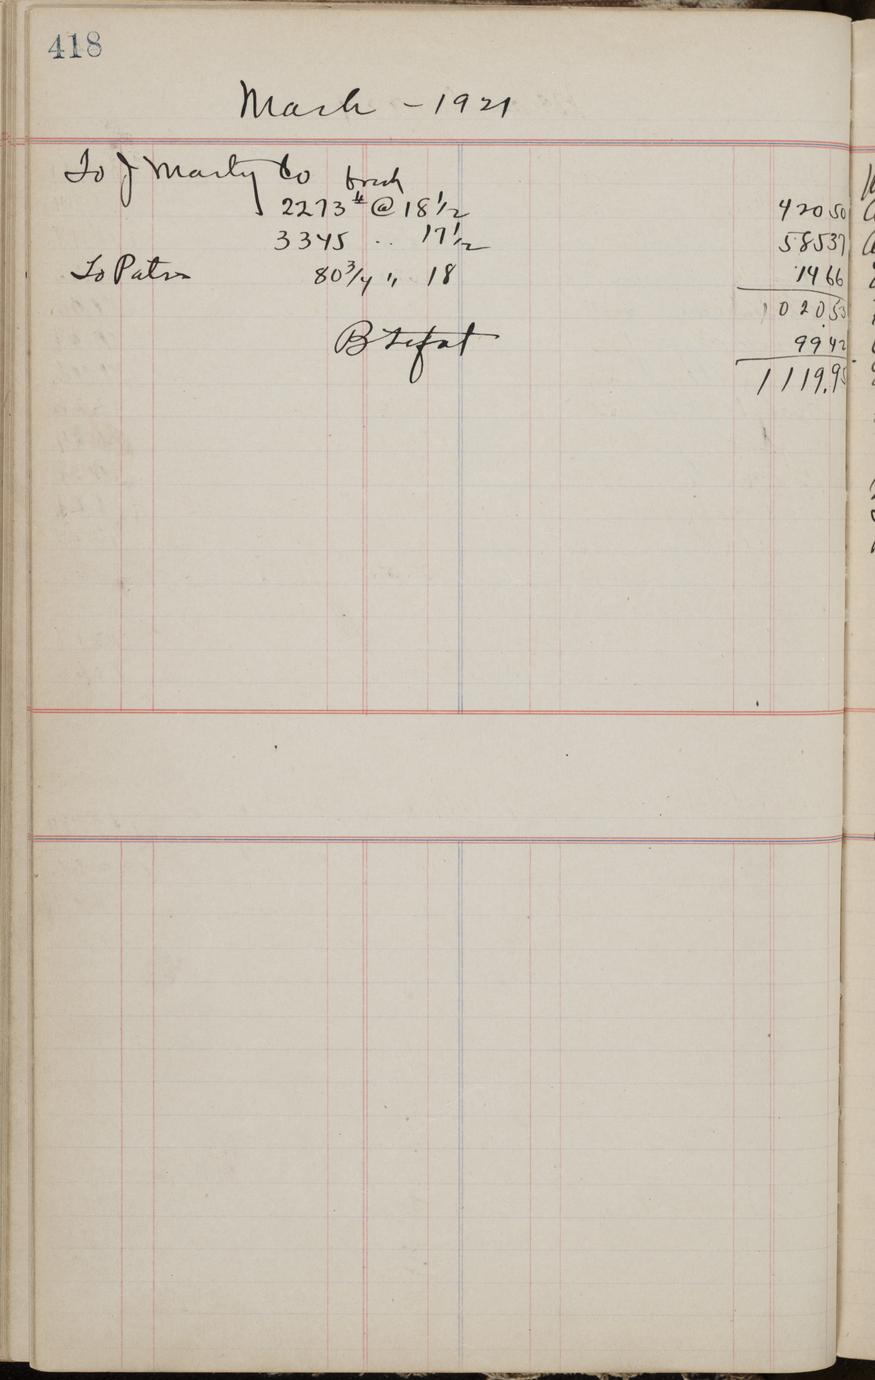 418
March - 1921
To J Marty Co brick
2273 # @ 18 1/2 420 50
3345 " 17 1/2 585 37
To Patrs 80 3/4 " 18 14 66
1020 53
99 42
1119.95